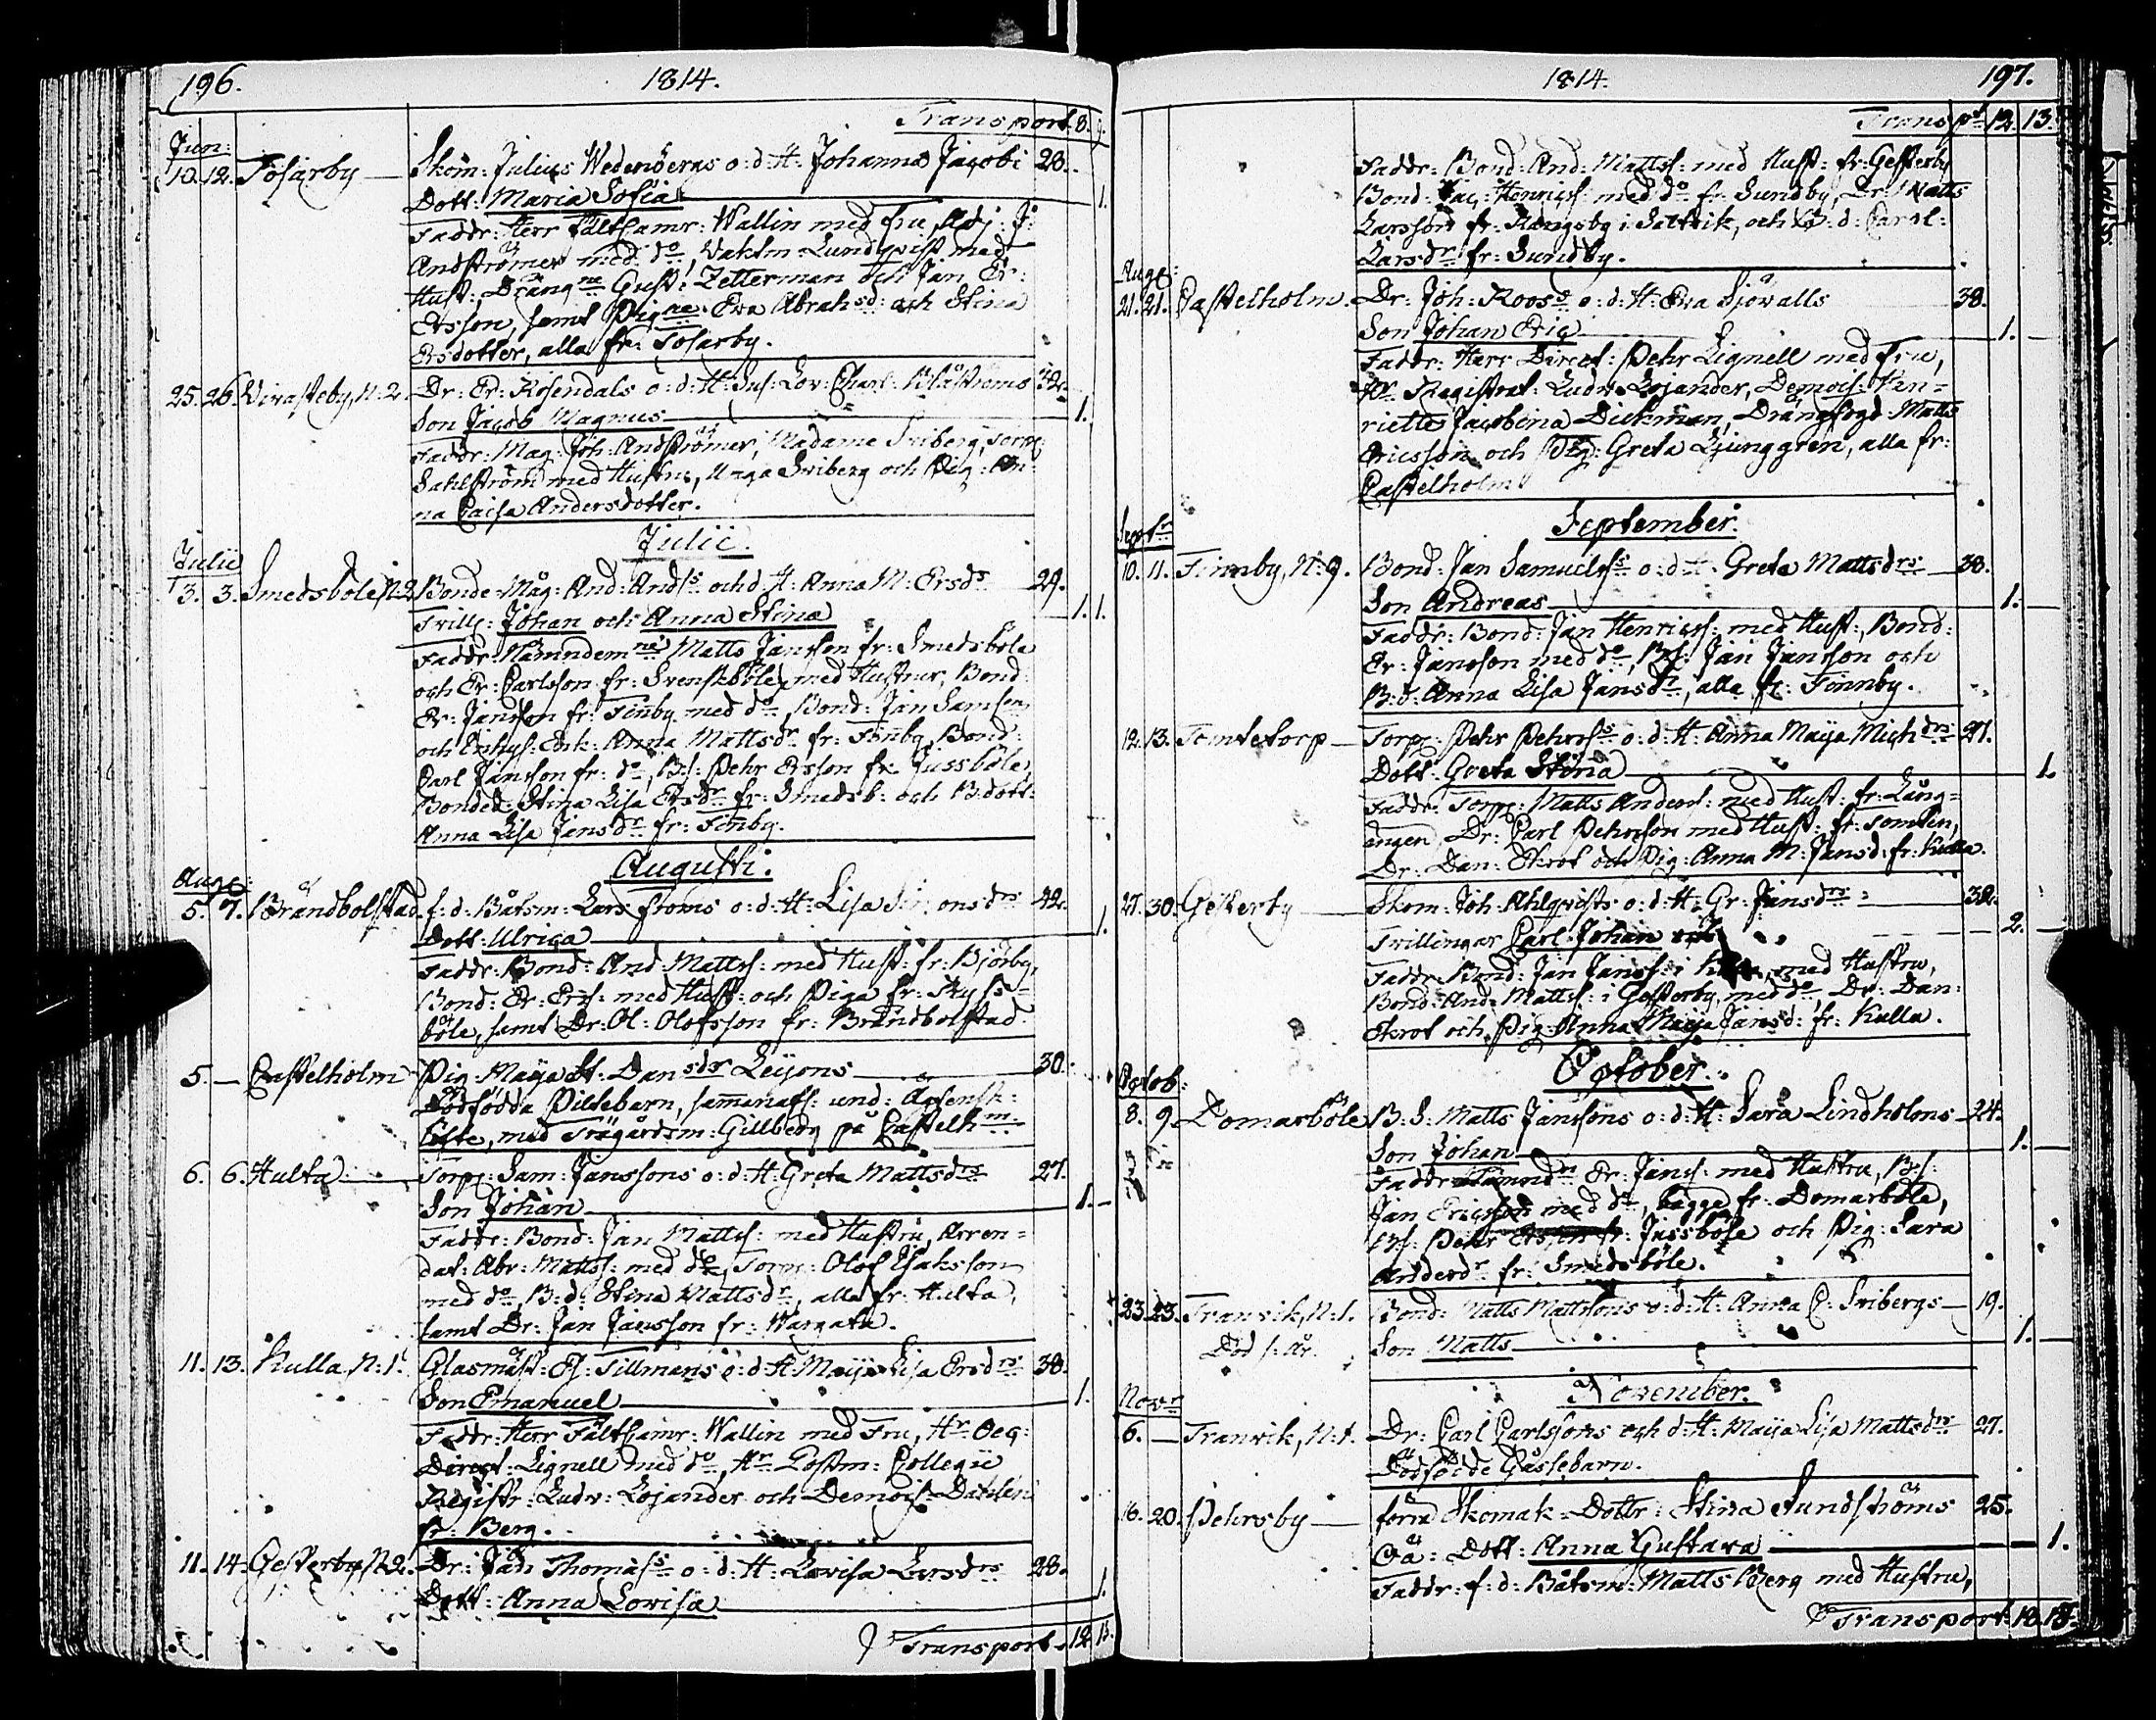 196.
1814.
Transport 8. 9.
Jun:
10. 12. Tosarby — Skom: Julius Wedenbergs o: d: H: Johanna Jacobi 28.
Dott: Maria Sofia — 1.
Faddr: Herr Fältkamr: Wallin med Fru, Adj: J:
Andströmer med do, Vaktm: Lundqvist med
Hust: Drängne Gust: Zetterman och Jan Er:
Ersson, samt Pigne Eva Abrahsd: och Stina
Ersdotter, alla fr: Tosarby.
25. 26. N: 2. Dr: Er: Rosendals o: d: H: Lov: Charl: Blåströms 32.
Son Jacob Magnus — 1.
Faddr: Mag: Joh: Andströmer, Madame Friberg, Torp:
Sahlström med Hustru, Unga Friberg och Pig: An-
na Caisa Andersdotter.
Julii.
Julii
3. 3. Smedsböle N: 2 Bonde Måg: And: Ands: och d: H: Anna M: Ersdrs 29.
Tvill: Johan och Anna Stina — 1. 1.
Faddr: Nämndemne Matts Jansson fr: Smedsböle
och Er: Carlsson fr: Svenskböle med Hustrur, Bond:
Er: Jansson fr: Finby med do, Bond: Jan Samsson
och Enk: Anna Mattsdr fr: Finby, Bond:
Carl Jansson fr: do, B:s: Pehr Ersson fr: Jussböle,
Bonded: Stina Lisa Ersdr fr: Smedsb: och B:dott:
Anna Lisa Jansdr fr: Finby.
Augusti.
Aug:
5. 7. Brändbolstad f: d: Båtsm: Lars Froms o: d: H: Lisa Simonsdrs 42.
Dott: Ulrica — 1.
Faddr: Bond: And: Mattss: med Hust: fr: Björby,
Bond: Er: Erss: med Hust: och Piga fr:
böle, samt Dr: Ol: Olofsson fr: Brändbolstad
5. — Castelholm Pig: Maja St: Dansdr Leijons — 30.
Dödfödda Piltebarn,
med Trägårdsm: Gillberg på Castelhm
6. 6. Hulta — Torp: Sam: Janssons o: d: H: Greta Mattsdrs 27.
Son Johan — 1.
Faddr: Bond: Jan Mattss: med Hustru, Arren-
dat: Abr: Mattss: med do, Torp: Olof Isaksson
med do, B: d: Stina Mattsdr, alla fr: Hulta,
samt Dr: Jan Jansson fr: Wargata.
11. 13. Kulla, N: 1. Glasmäst: Tillmans o: d: H: Maija Lisa Ersdrs 38.
Son Emanuel — 1.
Faddr: Herr Fältkamr: Wallin med Fru, Hr Oec:
Direct: Lignell med do, Hr Postm: Collegii
Registr: Ludv: Lojander och Demois: Dahlen
fr: Berg.
11. 14. Gesterby, N: 2. Dr: Jan Thomass: o: d: H: Lovisa Larsdrs 28.
Dott: Anna Lovisa — 1.
Transport 12. 13.
1814.
197.
Transpt 12. 13.
Faddr: Bond: And: Mattss: med Hust: fr: Gesterby
Bond: Jac: Henricss: med do fr: Sundby, Dr: Matts
Larsson fr: Rangsby i Saltvik, och B: d: Carol:
Larsdr fr: Sundby.
Aug:
21. 21. Castelholm. Dr: Joh: Rooss o: d: H: Eva Sjövalls 38.
Son Johan Eric — 1.
Faddr: Herr Direct: Pehr Lignell med Fru,
Hr Registrat: Ludv: Lojander, Demois: Hen-
riette Jacobina Dickman, Drängfogd: Matts
Ericsson och Pig: Greta Ljunggren, alla fr:
Castelholm
September.
Septr
10. 11. Finnby, N: 9. Bond: Jan Samuelss: o: d: H: Greta Mattsdrs 38.
Son Andreas — 1.
Faddr: Bond: Jan Henricss: med Hust:, Bond:
Er: Jansson med do, B:s: Jan Jansson och
B: d: Anna Lisa Jansdr, alla fr: Finnby.
12. 13. Tomtetorp — Torp: Pehr Pehrss: o: d: H: Anna Maija Michdrs 27.
Dott: Greta Stina — 1.
Faddr: Torp: Matts Anderss: med Hust: fr: Lång-
ängen, Dr: Carl Pehrsson med Hust: fr: Tomten,
Dr: Dan: Ekrot och Pig: Anna M: Jansd: fr: Kulla.
27. 30. Gesterby — Skom: Joh: Ahlqvists o: d: H: Gr: Jansdrs 32.
Tvillingar Carl Johan och — 2.
Faddr: Bond: Jan Janss: i med Hustru,
Bond: And: Mattss: i Gesterby, med do, Dr: Dan:
Ekrot och Pig: Anna Maija Jansd: fr: Kulla.
October.
Octob:
8. 9. Domarböle B: S: Matts Janssons o: d: H: Sara Lindholms 24.
Son Johan — 1.
Faddr: Er: Janss: med Hustru, B:s:
Jan Ericsson med do, bägge fr: Domarböle,
B:s: Pehr Ersson fr: Jussböle och Pig: Sara
Andersdr fr: Smedsböle.
23. 23. Tranvik, N: 1. Bond: Matts Mattssons o: d: H: Anna C: Fribergs 19.
Död s: år. Son Matts — 1.
November.
Novr
6. — Tranvik, N: 1. Dr: Carl Carlssons och d: H: Maija Lisa Mattsdrs 27.
Dödfödde Gossebarn.
16. 20. Pehrsby — förra Skomak: Dottr: Stina Sundströms 25.
Oä: Dott: Anna Gustava — 1.
Faddr: f: d: Båtsm: Matts Berg med Hustru,
Transport: 18. 18.